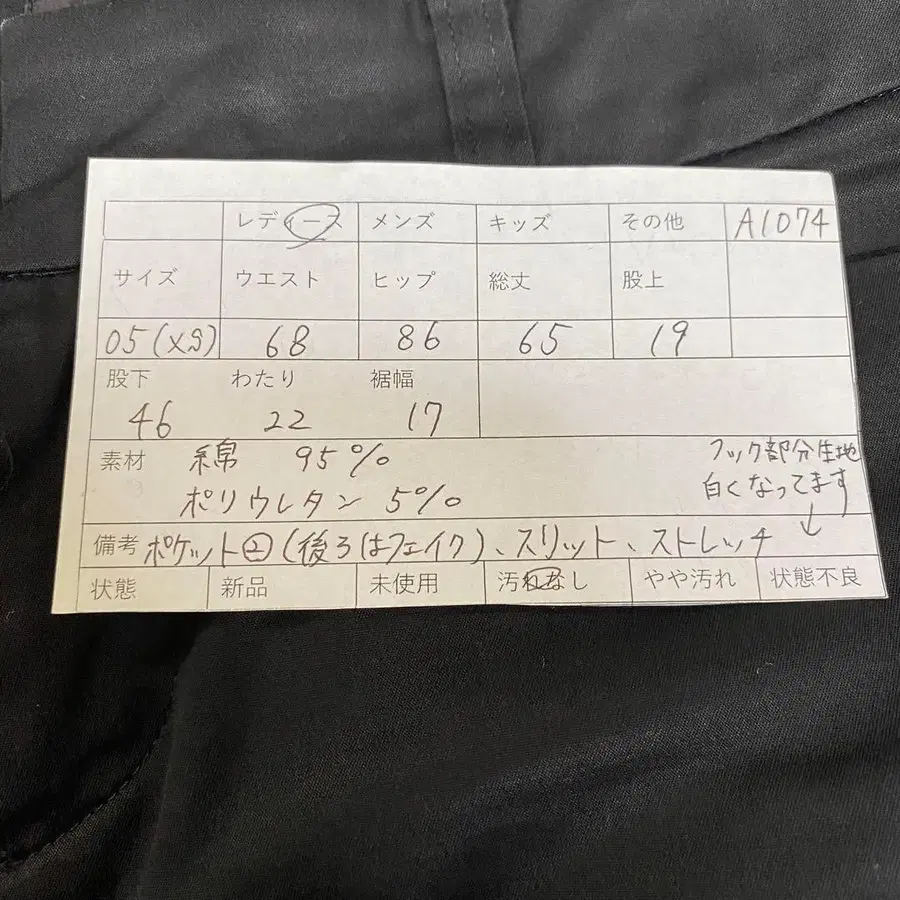 レディース メンズ キッズ その他 A1074
サイズ ウエスト ヒップ 総丈 股上
05(XS) 68 86 65 19
股下 わたり 裾幅
46 22 17
素材 綿 95%
ポリウレタン 5%
フック部分生地
白くなってます
備考 ポケット (後ろはフェイク)、スリット、ストレッチ ↓
状態 新品 未使用 汚れなし やや汚れ 状態不良